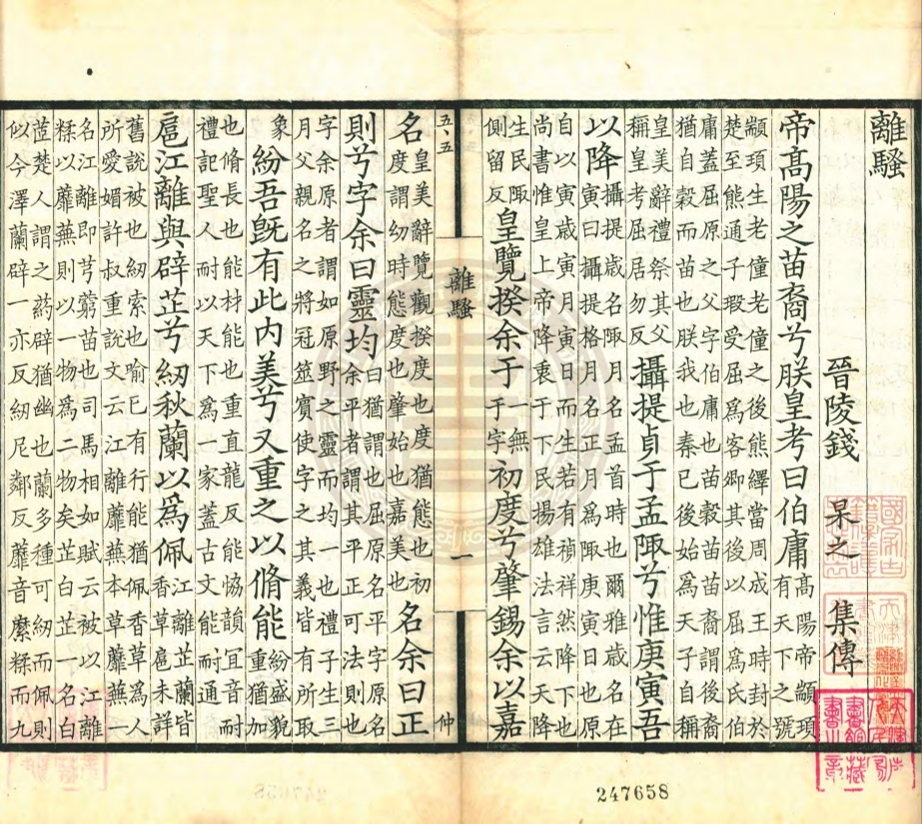 離騷
晉陵錢 杲之 集傳
帝高陽之苗裔兮朕皇考曰伯庸高陽帝顓頊有天下之號
顓頊生老僮老僮之後熊繹當周成王時封於
楚至熊通子瑕受屈爲客卿其後以屈爲氏伯
庸蓋屈原之父字伯庸也苗穀苗裔謂後裔
猶自穀而苗也朕我也秦已後始爲天子自稱
皇美辭禮祭其父稱皇考屈居勿反攝提貞于孟陬兮惟庚寅吾
以降攝提歲名陬月名孟首時也爾雅歲名在寅曰攝提格月名正月爲陬庚寅日也原
自以寅歲寅月寅日而生若有禎祥然降下也
尚書惟皇上帝降衷于下民揚雄法言云天降
生民陬側留反皇覽揆余于一無于字初度兮肇錫余以嘉
五、五
離騷
一
仲
名皇美辭覽觀揆度也度猶態也初度謂幼時態度也肇始也嘉美也名余曰正
則兮字余曰靈均曰猶謂也屈原名平字原名余平者謂其平正可法則也
字余原者謂如原野之靈而均一也禮子生三
月父親名之將冠筮賓使字之其義皆有所取
象紛吾旣有此内美兮又重之以脩能紛盛貌重猶加
也脩長也能材能也重直龍反能協韻冝音耐
禮記聖人耐以天下爲一家蓋古文能耐通
扈江離與辟芷兮紉秋蘭以爲佩江離芷蘭皆香草扈未詳
舊說被也紉索也喻已有行能猶佩香草爲人
所愛媚許叔重說文云江離蘼蕪本草蘼蕪一
名江離即芎藭苗也司馬相如賦云被以江離
糅以蘼蕪則以一物爲二物矣芷白芷一名白
茝楚人謂之葯辟猶幽也蘭多種可紉而佩則
似今澤蘭辟一亦反紉尼鄰反蘼音縻糅而九
247658